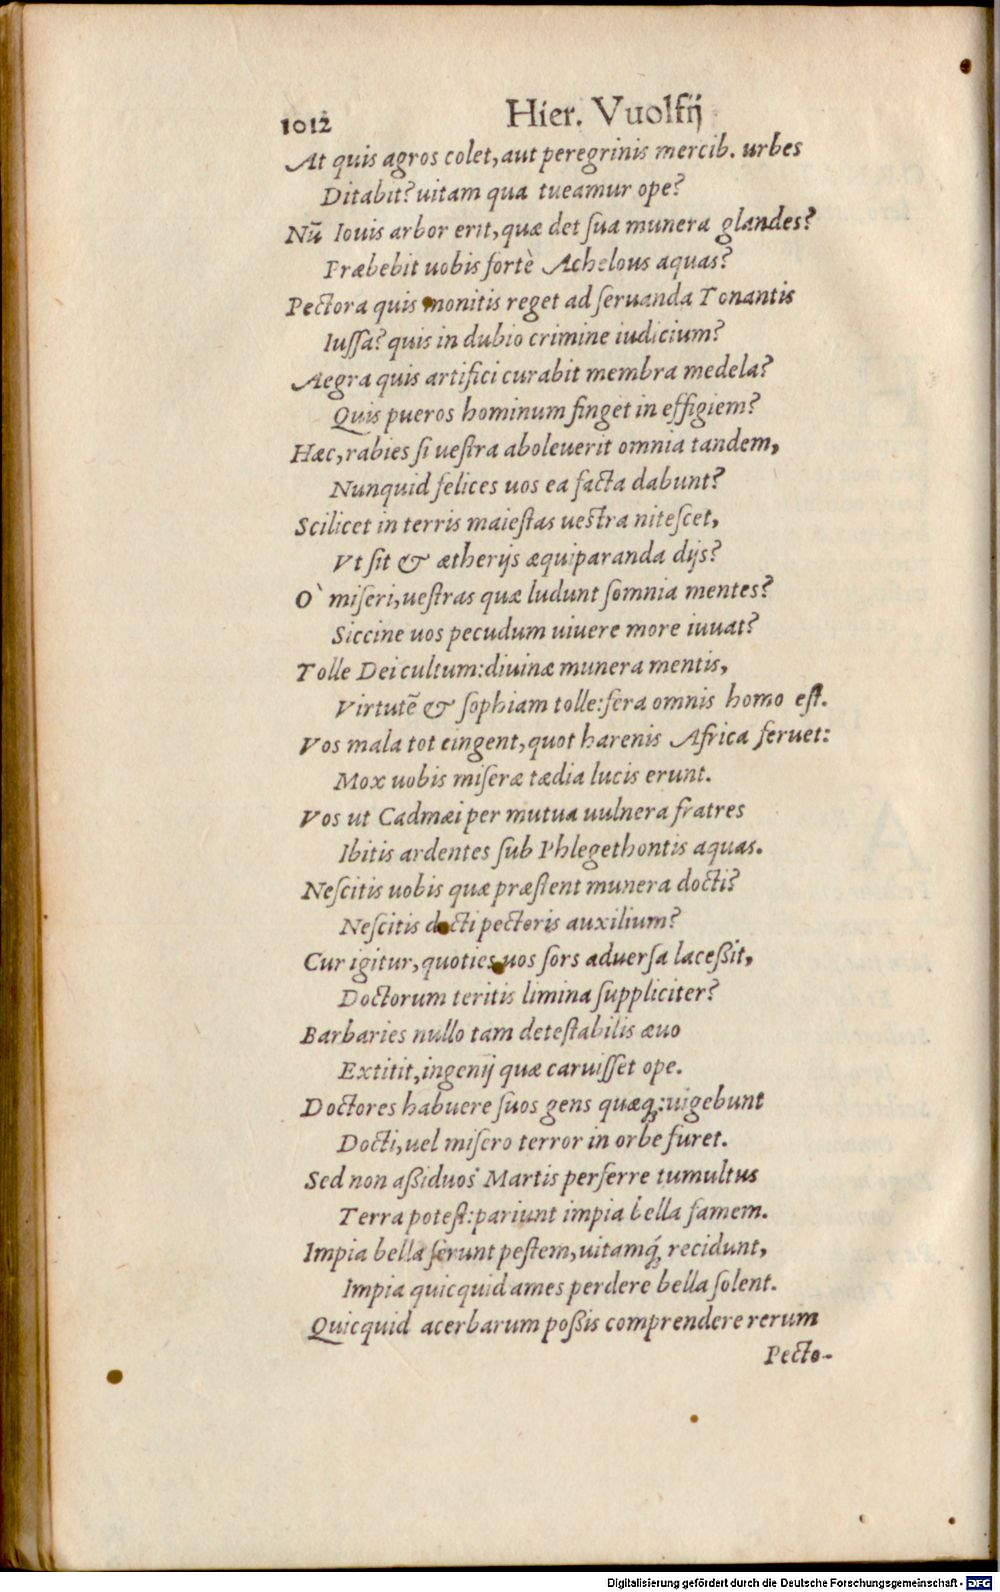 1012 Hier. Vuolfij
At quis agros colet, aut peregrinis mercib. urbes
Ditabit? uitam qua tueamur ope?
Nũ Iouis arbor erit, quæ det ſua munera glandes?
Præbebit uobis fortè Achelous aquas?
Pectora quis monitis reget ad ſeruanda Tonantis
Iuſſa? quis in dubio crimine iudicium?
Aegra quis artifici curabit membra medela?
Quis pueros hominum finget in effigiem?
Hæc, rabies ſi ueſtra aboleuerit omnia tandem,
Nunquid felices uos ea facta dabunt?
Scilicet in terris maieſtas ueſtra niteſcet,
Vt ſit & ætherijs æquiparanda dijs?
Ò miſeri, ueſtras quæ ludunt ſomnia mentes?
Siccine uos pecudum uiuere more iuuat?
Tolle Dei cultum: diuinæ munera mentis,
Virtutẽ & ſophiam tolle: fera omnis homo eſt.
Vos mala tot cingent, quot harenis Africa feruet:
Mox uobis miſeræ tædia lucis erunt.
Vos ut Cadmæi per mutua uulnera fratres
Ibitis ardentes ſub Phlegethontis aquas.
Neſcitis uobis quæ præſtent munera docti?
Neſcitis docti pectoris auxilium?
Cur igitur, quoties uos ſors aduerſa laceßit,
Doctorum teritis limina ſuppliciter?
Barbaries nullo tam deteſtabilis æuo
Extitit, ingenij quæ caruiſſet ope.
Doctores habuere ſuos gens quæq;: uigebunt
Docti, uel miſero terror in orbe furet.
Sed non aßiduos Martis perferre tumultus
Terra poteſt: pariunt impia bella famem.
Impia bella ſerunt peſtem, uitamq́; recidunt,
Impia quicquid ames perdere bella ſolent.
Quicquid acerbarum poßis comprendere rerum
Pecto-
Digitalisierung gefördert durch die Deutsche Forschungsgemeinschaft - DFG